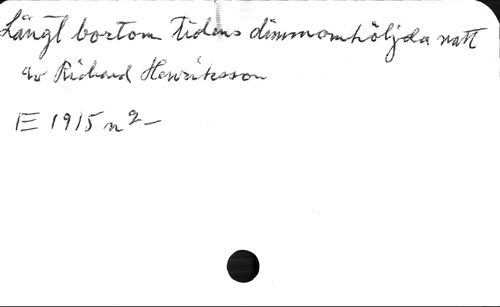 Långt bortom tidens dimmomhöljda natt
av Richard Henriksson
E 1915 n 2 –